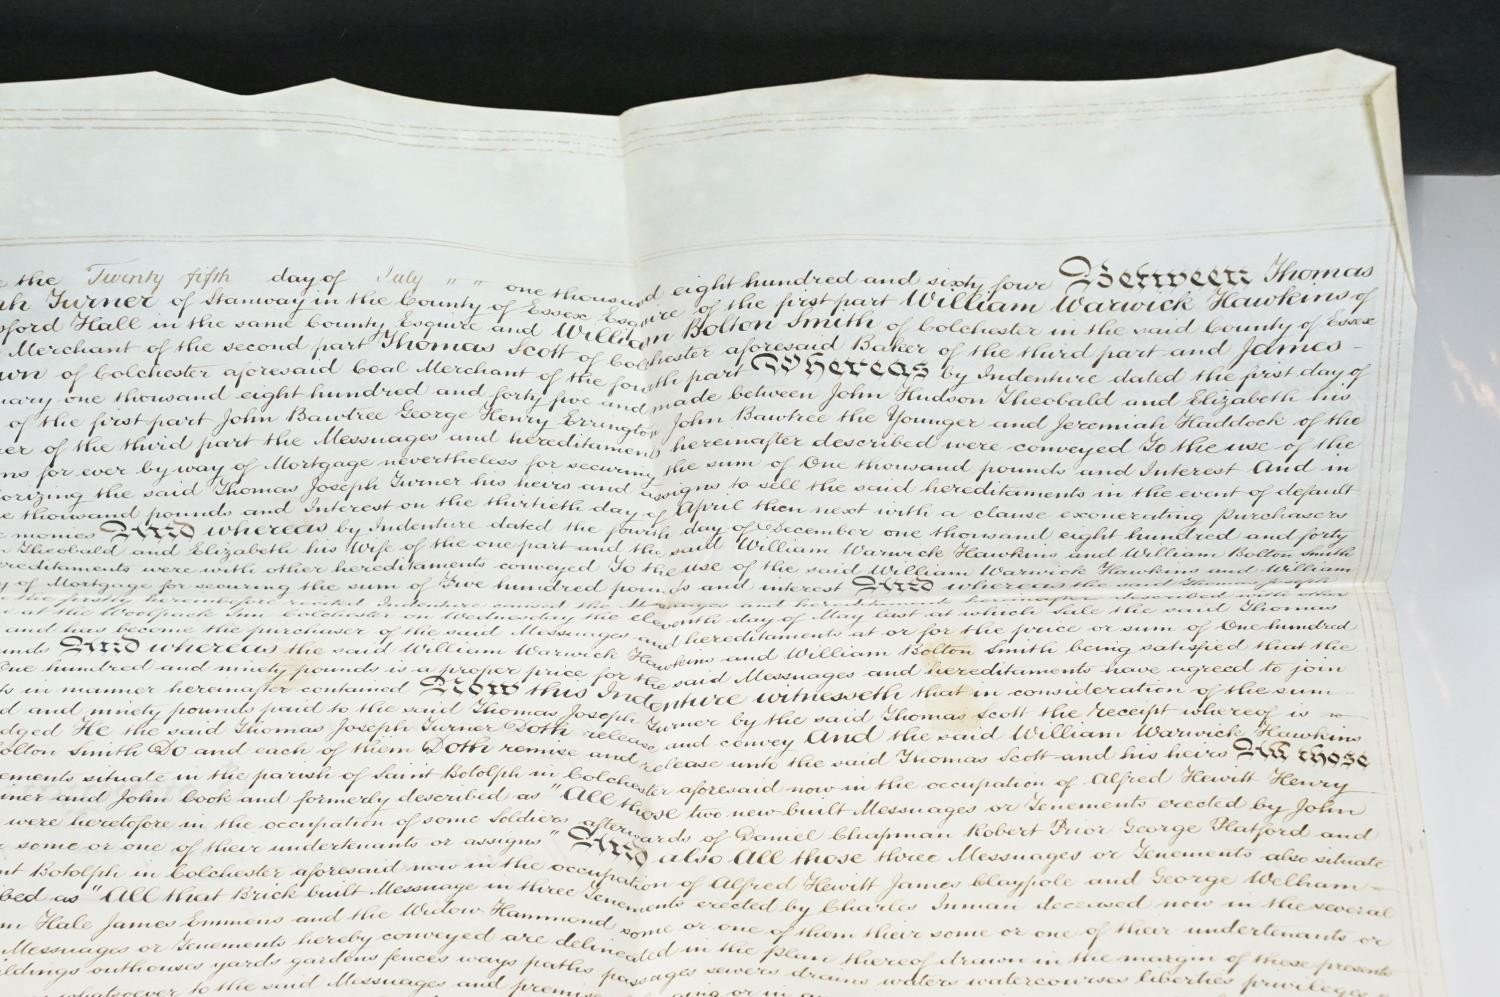 the Twenty fifth day of July " " one thousand eight hundred and sixty four Between Thomas
Turner of Stanway in the County of Essex Esquire of the first part William Warwick Hawkins of
Hall in the same County Esquire and William Bolton Smith of Colchester in the said County of Essex
Merchant of the second part Thomas Scott of Colchester aforesaid Baker of the third part and James
of Colchester aforesaid Coal Merchant of the fourth part Whereas by Indenture dated the first day of
one thousand eight hundred and forty five and made between John Hudson Theobald and Elizabeth his
of the first part John Bawtree George Henry Errington John Bawtree the Younger and Jeremiah Haddock of the
of the third part the Messuages and hereditaments hereinafter described were conveyed To the use of the
for ever by way of Mortgage nevertheless for securing the sum of One thousand pounds and Interest And in
the said Thomas Joseph Turner his heirs and assigns to sell the said hereditaments in the event of default
thousand pounds and Interest on the thirtieth day of April then next with a clause exonerating purchasers
monies And whereas by Indenture dated the fourth day of December one thousand eight hundred and forty
Theobald and Elizabeth his Wife of the one part and the said William Warwick Hawkins and William Bolton Smith
were with other hereditaments conveyed To the use of the said William Warwick Hawkins and William
of Mortgage for securing the sum of Five hundred pounds and interest And whereas the said Thomas Joseph
recited Indenture caused the Messuages and hereditaments hereinafter described with other
at the Woolpack Inn Colchester on Wednesday the eleventh day of May last at which Sale the said Thomas
and has become the purchaser of the said Messuages and hereditaments at or for the price or sum of One hundred
And whereas the said William Warwick Hawkins and William Bolton Smith being satisfied that the
One hundred and ninety pounds is a proper price for the said Messuages and hereditaments have agreed to join
in manner hereinafter contained Now this Indenture witnesseth that in consideration of the sum
and ninety pounds paid to the said Thomas Joseph Turner by the said Thomas Scott the receipt whereof is
He the said Thomas Joseph Turner Doth release and convey And the said William Warwick Hawkins
Bolton Smith Do and each of them Doth remise and release unto the said Thomas Scott and his heirs All those
situate in the parish of Saint Botolph in Colchester aforesaid now in the occupation of Alfred Hewitt Henry
and John Cook and formerly described as "All those two new built Messuages or Tenements erected by John
were heretofore in the occupation of some Soldiers afterwards of Daniel Chapman Robert Prior George Platford and
some or one of their undertenants or assigns" And also All those three Messuages or Tenements also situate
Botolph in Colchester aforesaid now in the occupation of Alfred Hewitt James Claypole and George Welham
as "All that Brick built Messuage in three Tenements erected by Charles Inman deceased now in the several
Hale James Emmens and the Widow Hammond some or one of them their some or one of their undertenants or
Messuages or Tenements hereby conveyed are delineated in the plan thereof drawn in the margin of these presents
outhouses yards gardens fences ways paths passages sewers drains waters watercourses liberties privileges
whatsoever to the said Messuages and